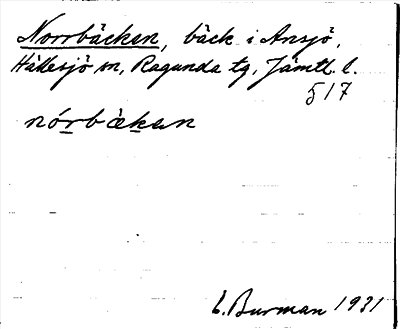 Norrbäcken, bäck i Ansjö,
Hällesjö sn, Ragunda tg, Jämtl. l.
§17
nórbäkan
L. Burman 1931